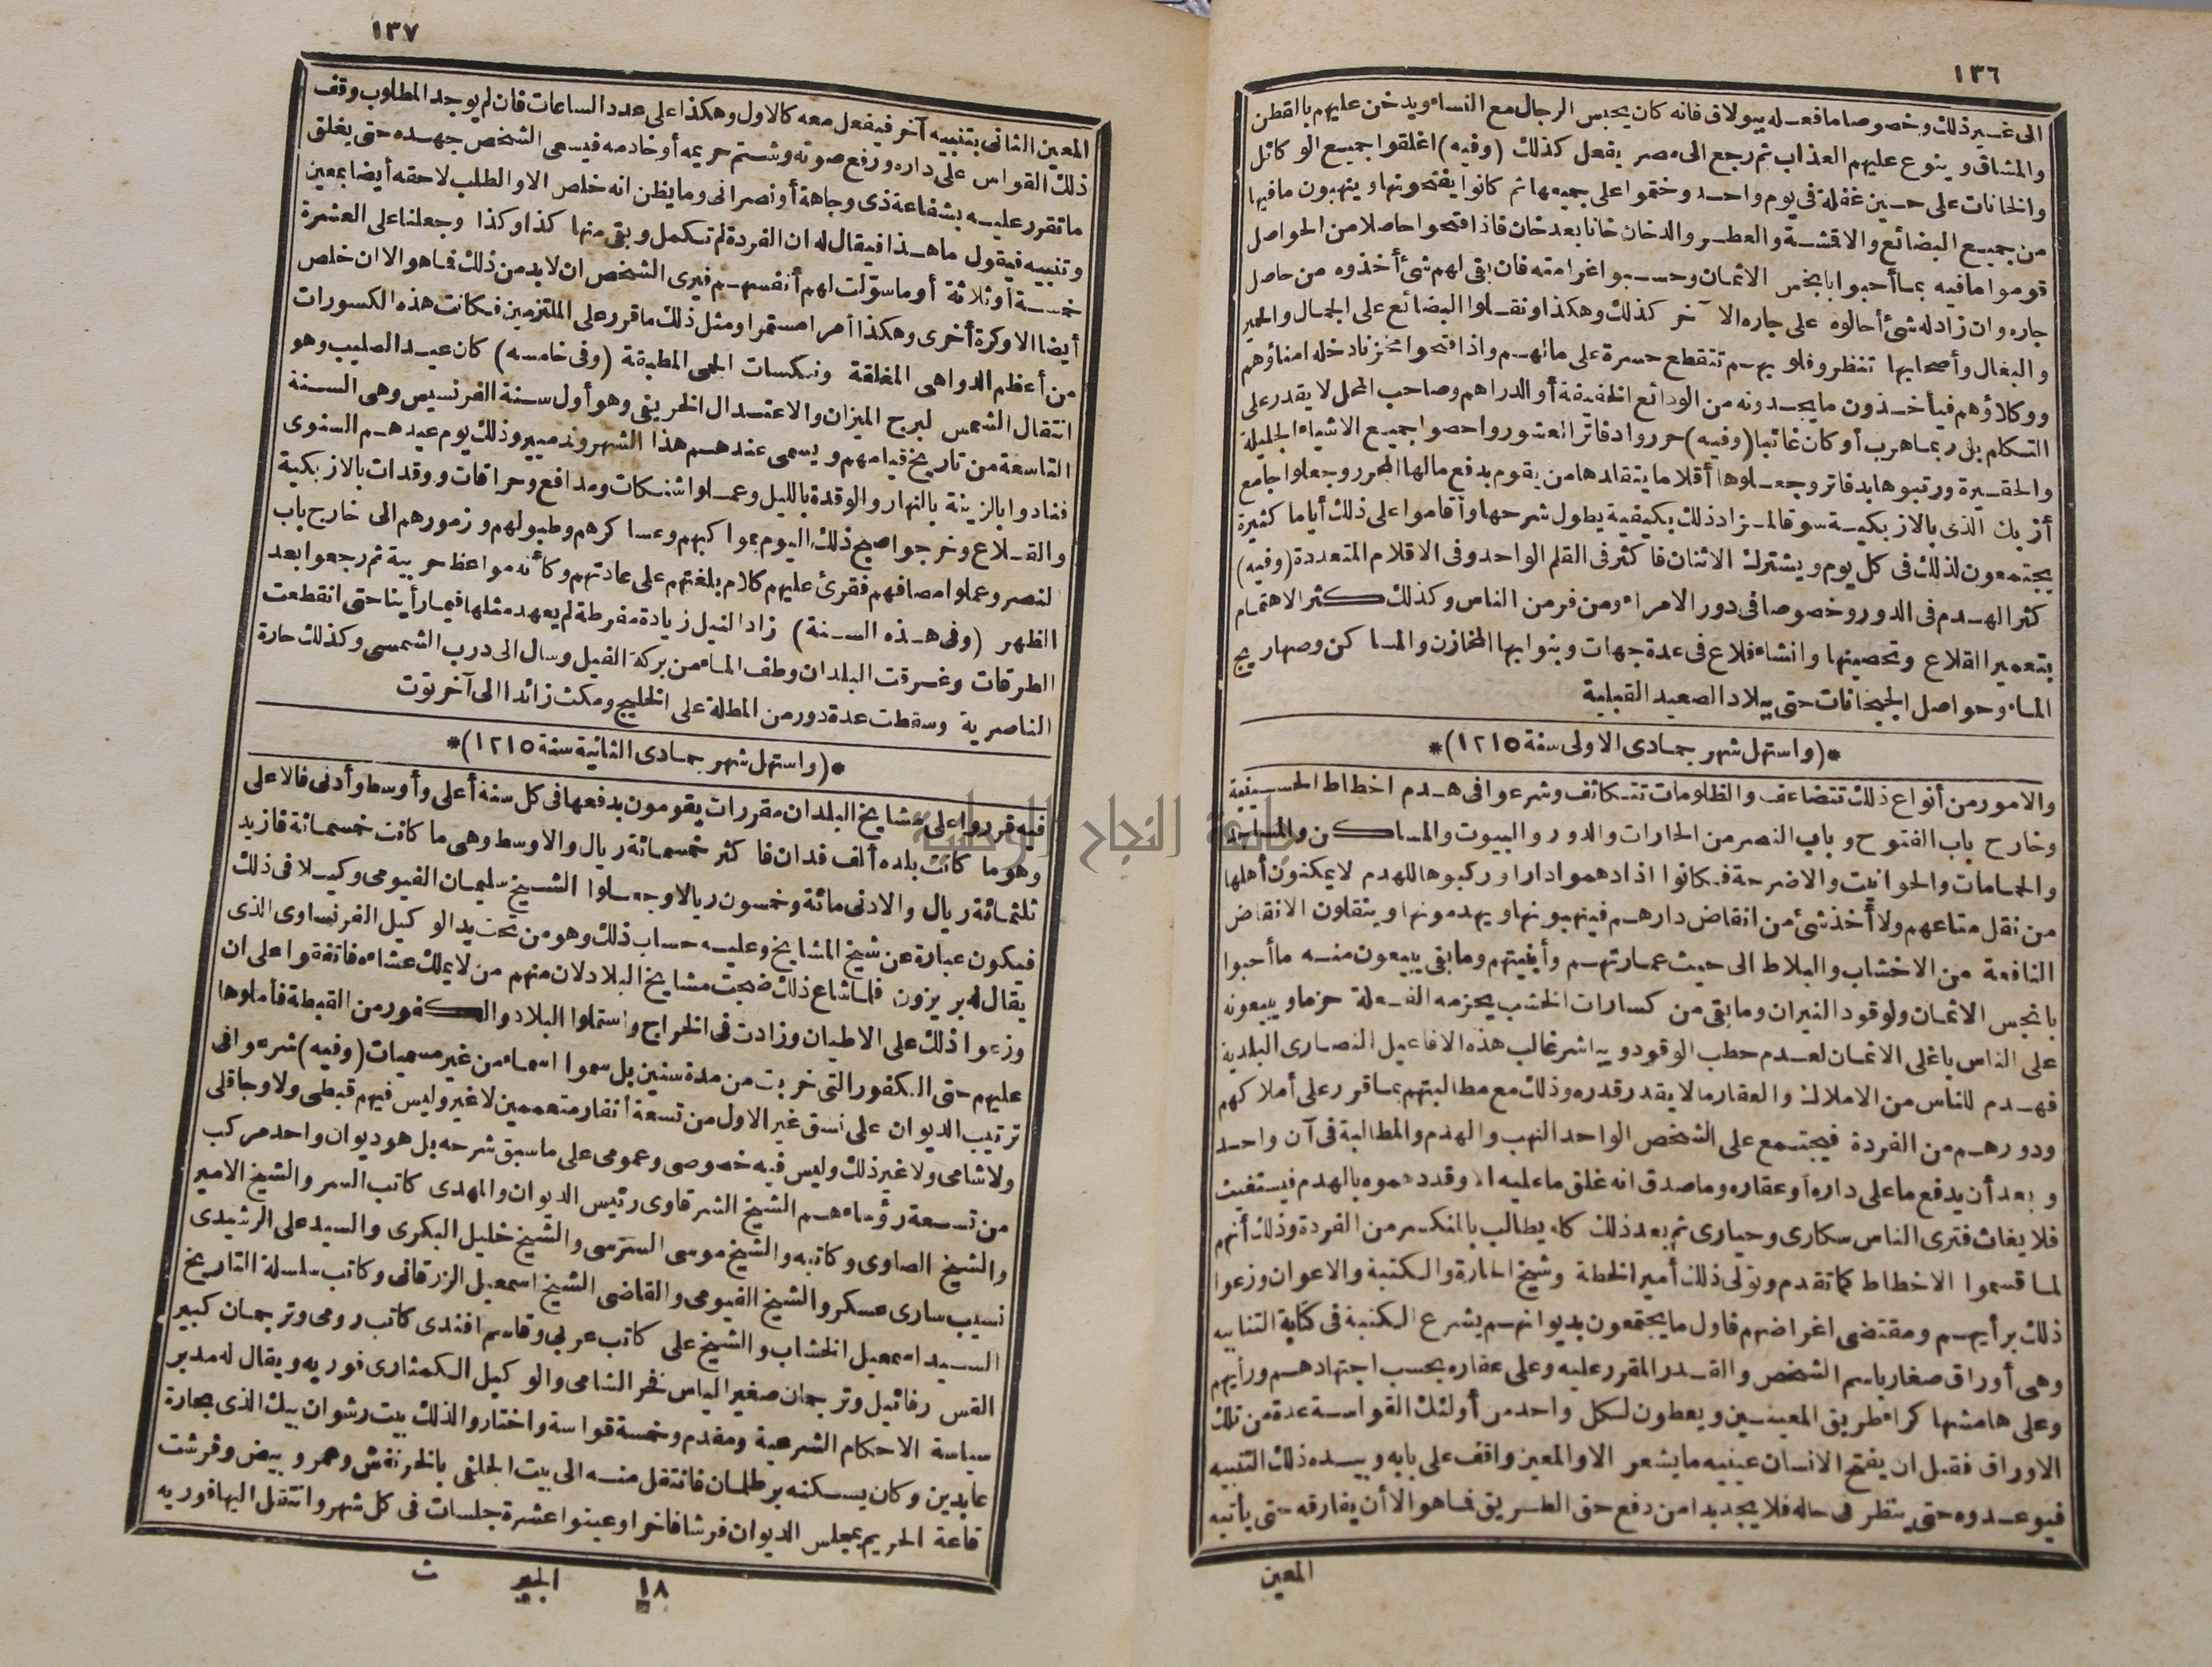 ١٣٦
الى غير ذلك وخصوصا ما فعله ببولاق فانه كان يحبس الرجال مع النساء ويدخن عليهم بالقطن
والمشاق وينوع عليهم العذاب ثم رجع الى مصر يفعل كذلك (وفيه) اغلقوا جميع الوكائل
والخانات على حين غفلة فى يوم واحد وختموا على جميعها ثم كانوا يفتحونها وينهبون ما فيها
من جميع البضائع والاقشة والعطر والدخان خانا بعد خان فاذا فتحوا حاصلا من الحواصل
قوموا ما فيه بما أحبوا بابخس الاثمان وحسبوا غرامته فان بقى لهم شئ أخذوه من حاصل
جاره وان زاد له شئ أحالوه على جاره الآخر كذلك وهكذا ونقلوا البضائع على الجمال والحمير
والبغال وأصحابها تنظر وقلوبهم تتقطع حسرة على مالهم واذا فتحوا مخزنا دخله امناؤهم
ووكلاؤهم فيأخذون ما يجدونه من الودائع الخفيفة أو الدراهم وصاحب المحل لا يقدر على
التكلم بل ربما هرب أو كان غائبا (وفيه) حرروا دفاتر العشور واحصوا جميع الاشياء الجليلة
والحقيرة ورتبوها بدفاتر وجعلوها أقلاما يتقلدها من يقوم بدفع مالها المحرر وجعلوا جامع
أزبك الذى بالازبكية سوقا لمزاد ذلك بكيفية يطول شرحها وأقاموا على ذلك أياما كثيرة
يجتمعون لذلك فى كل يوم ويشترك الاثنان فاكثر فى القلم الواحد وفى الاقلام المتعددة (وفيه)
كثر الهدم فى الدور وخصوصا فى دور الامراء ومن فر من الناس وكذلك كثر الاهتمام
بتعمير القلاع وتحصينها وانشاء قلاع فى عدة جهات وبنوا بها المخازن والمساكن وصهاريج
الماء وحواصل الجبخانات حتى ببلاد الصعيد القبلية
*(واستهل شهر جمادى الاولى سنة ١٢١٥)*
والامور من أنواع ذلك تتضاعف والظلومات تتكاثف وشرعوا فى هدم اخطاط الحسينية
وخارج باب الفتوح وباب النصر من الحارات والدور والبيوت والمساكن والمساجد
والحمامات والحوانيت والاضرحة فكانوا اذا دهموا دارا وركبوها للهدم لا يمكنون أهلها
من نقل متاعهم ولا أخذ شئ من انقاض دارهم فينهبونها ويهدمونها وينقلون الانقاض
النافعة من الاخشاب والبلاط الى حيث عمارتهم وأبنيتهم وما بقى يبيعون منه ما أحبوا
بابخس الاثمان ولوقود النيران وما بقى من كسارات الخشب يحزمه الفعلة حزما ويبيعونه
على الناس باغلى الاثمان لعدم حطب الوقود ويباشر غالب هذه الافاعيل النصارى البلدية
فهدم للناس من الاملاك والعقار ما لا يقدر قدره وذلك مع مطالبتهم بما قرر على أملاكهم
ودورهم من الفردة فيجتمع على الشخص الواحد النهب والهدم والمطالبة فى آن واحد
وبعد أن يدفع ما على داره أو عقاره وما صدق انه غلق ما عليه الا وقد دهموه بالهدم فيستغيث
فلا يغاث فترى الناس سكارى وحيارى ثم بعد ذلك كله يطالب بالمنكسر من الفردة وذلك أنهم
لما قسموا الاخطاط كما تقدم وتولى ذلك أمير الخطة وشيخ الحارة والكتبة والاعوان وزعوا
ذلك برأيهم ومقتضى اغراضهم فاول ما يجتمعون بديوانهم يشرع الكتبة فى كتابة التنابيه
وهى أوراق صغار باسم الشخص والقدر المقرر عليه وعلى عقاره بحسب اجتهادهم ورأيهم
وعلى هامشها كراء طريق المعينين ويعطون لكل واحد من أولئك القواسة عدة من تلك
الاوراق فقبل ان يفتح الانسان عينيه ما يشعر الا والمعين واقف على بابه وبيده ذلك التنبيه
فيوعده حتى ينظر فى حاله فلا يجد بدا من دفع حق الطريق فما هو الا أن يفارقه حتى يأتيه
المعين
١٣٧
المعين الثانى بتنبيه آخر فيفعل معه كالاول وهكذا على عدد الساعات فان لم يوجد المطلوب وقف
ذلك القواس على داره ورفع صوته وشتم حريمه أو خادمه فيسعى الشخص جهده حتى يغلق
ما تقرر عليه بشفاعة ذى وجاهة أو نصرانى وما يظن انه خلص الا والطلب لاحقه أيضا بمعين
وتنبيه فيقول ما هذا فيقال له ان الفردة لم تكمل وبقى منها كذا وكذا وجعلنا على العشرة
خمسة أو ثلاثة أو ما سولت لهم أنفسهم فيرى الشخص ان لا بد من ذلك فما هو الا ان خلص
أيضا الا وكرة أخرى وهكذا أمرا مستمرا ومثل ذلك ما قرر على الملتزمين فكانت هذه الكسورات
من أعظم الدواهى المغلقة ونكسات الحمى المطبقة (وفى خامسه) كان عيد الصليب وهو
انتقال الشمس لبرج الميزان والاعتدال الخريفى وهو أول سنة الفرنسيس وهى السنة
التاسعة من تاريخ قيامهم ويسمى عندهم هذا الشهر وندميير وذلك يوم عيدهم السنوى
فنادوا بالزينة بالنهار والوقدة بالليل وعملوا شنكات ومدافع وحراقات ووقدات بالازبكية
والقلاع وخرجوا صبح ذلك اليوم بمواكبهم وعساكرهم وطبولهم وزمورهم الى خارج باب
النصر وعملوا مصافهم فقرئ عليهم كلام بلغتهم على عادتهم وكأنه مواعظ حربية ثم رجعوا بعد
الظهر (وفى هذه السنة) زاد النيل زيادة مفرطة لم يعهد مثلها فيما رأينا حتى انقطعت
الطرقات وغرقت البلدان وطف الماء من بركة الفيل وسال الى درب الشمسى وكذلك حارة
الناصرية وسقطت عدة دور من المطلة على الخليج ومكث زائدا الى آخر توت
*(واستهل شهر جمادى الثانية سنة ١٢١٥)*
فيه قرروا على مشايخ البلدان مقررات يقومون بدفعها فى كل سنة أعلى وأوسط وأدنى فالاعلى
وهو ما كانت بلده ألف فدان فاكثر خمسمائة ريال والاوسط وهى ما كانت خمسمائة فازيد
ثلثمائة ريال والادنى مائة وخمسون ريالا وجعلوا الشيخ سليمان الفيومى وكيلا فى ذلك
فيكون عبارة عن شيخ المشايخ وعليه حساب ذلك وهو من تحت يد الوكيل الفرنساوى الذى
يقال له بريزون فلما شاع ذلك ضجت مشايخ البلاد لان منهم من لا يملك عشاءه فاتفقوا على ان
وزعوا ذلك على الاطيان وزادت فى الخراج واستملوا البلاد والكفور من القبطة فأملوها
عليهم حتى الكفور التى خربت من مدة سنين بل سموا اسماء من غير مسميات (وفيه) شرعوا فى
ترتيب الديوان على نسق غير الاول من تسعة أنفار متعممين لا غير وليس فيهم قبطى ولا وجاقلى
ولا شامى ولا غير ذلك وليس فيه خصوصى وعمومى على ما سبق شرحه بل هو ديوان واحد مركب
من تسعة رؤساء هم الشيخ الشرقاوى رئيس الديوان والمهدى كاتب السر والشيخ الامير
والشيخ الصاوى وكاتبه والشيخ موسى السرسى والشيخ خليل البكرى والسيد على الرشيدى
نسيب سارى عسكر والشيخ الفيومى والقاضى الشيخ اسمعيل الزرقانى وكاتب سلسلة التاريخ
السيد اسمعيل الخشاب والشيخ على كاتب عربى وقاسم افندى كاتب رومى وترجمان كبير
القس رفائيل وترجمان صغير الياس فخر الشامى والوكيل الكمثارى فوريه ويقال له مدبر
سياسة الاحكام الشرعية ومقدم وخمسة قواسة واختاروا لذلك بيت رشوان بيك الذى بحارة
عابدين وكان يسكنه برطلمان فانتقل منه الى بيت الجلفى بالخرنفش وعمر وبيض وفرشت
قاعة الحريم بمجلس الديوان فرشا فاخرا وعينوا عشرة جلسات فى كل شهر وانتقل اليها فوريه
١٨ الجبر ث
جامعة النجاح الوطنية